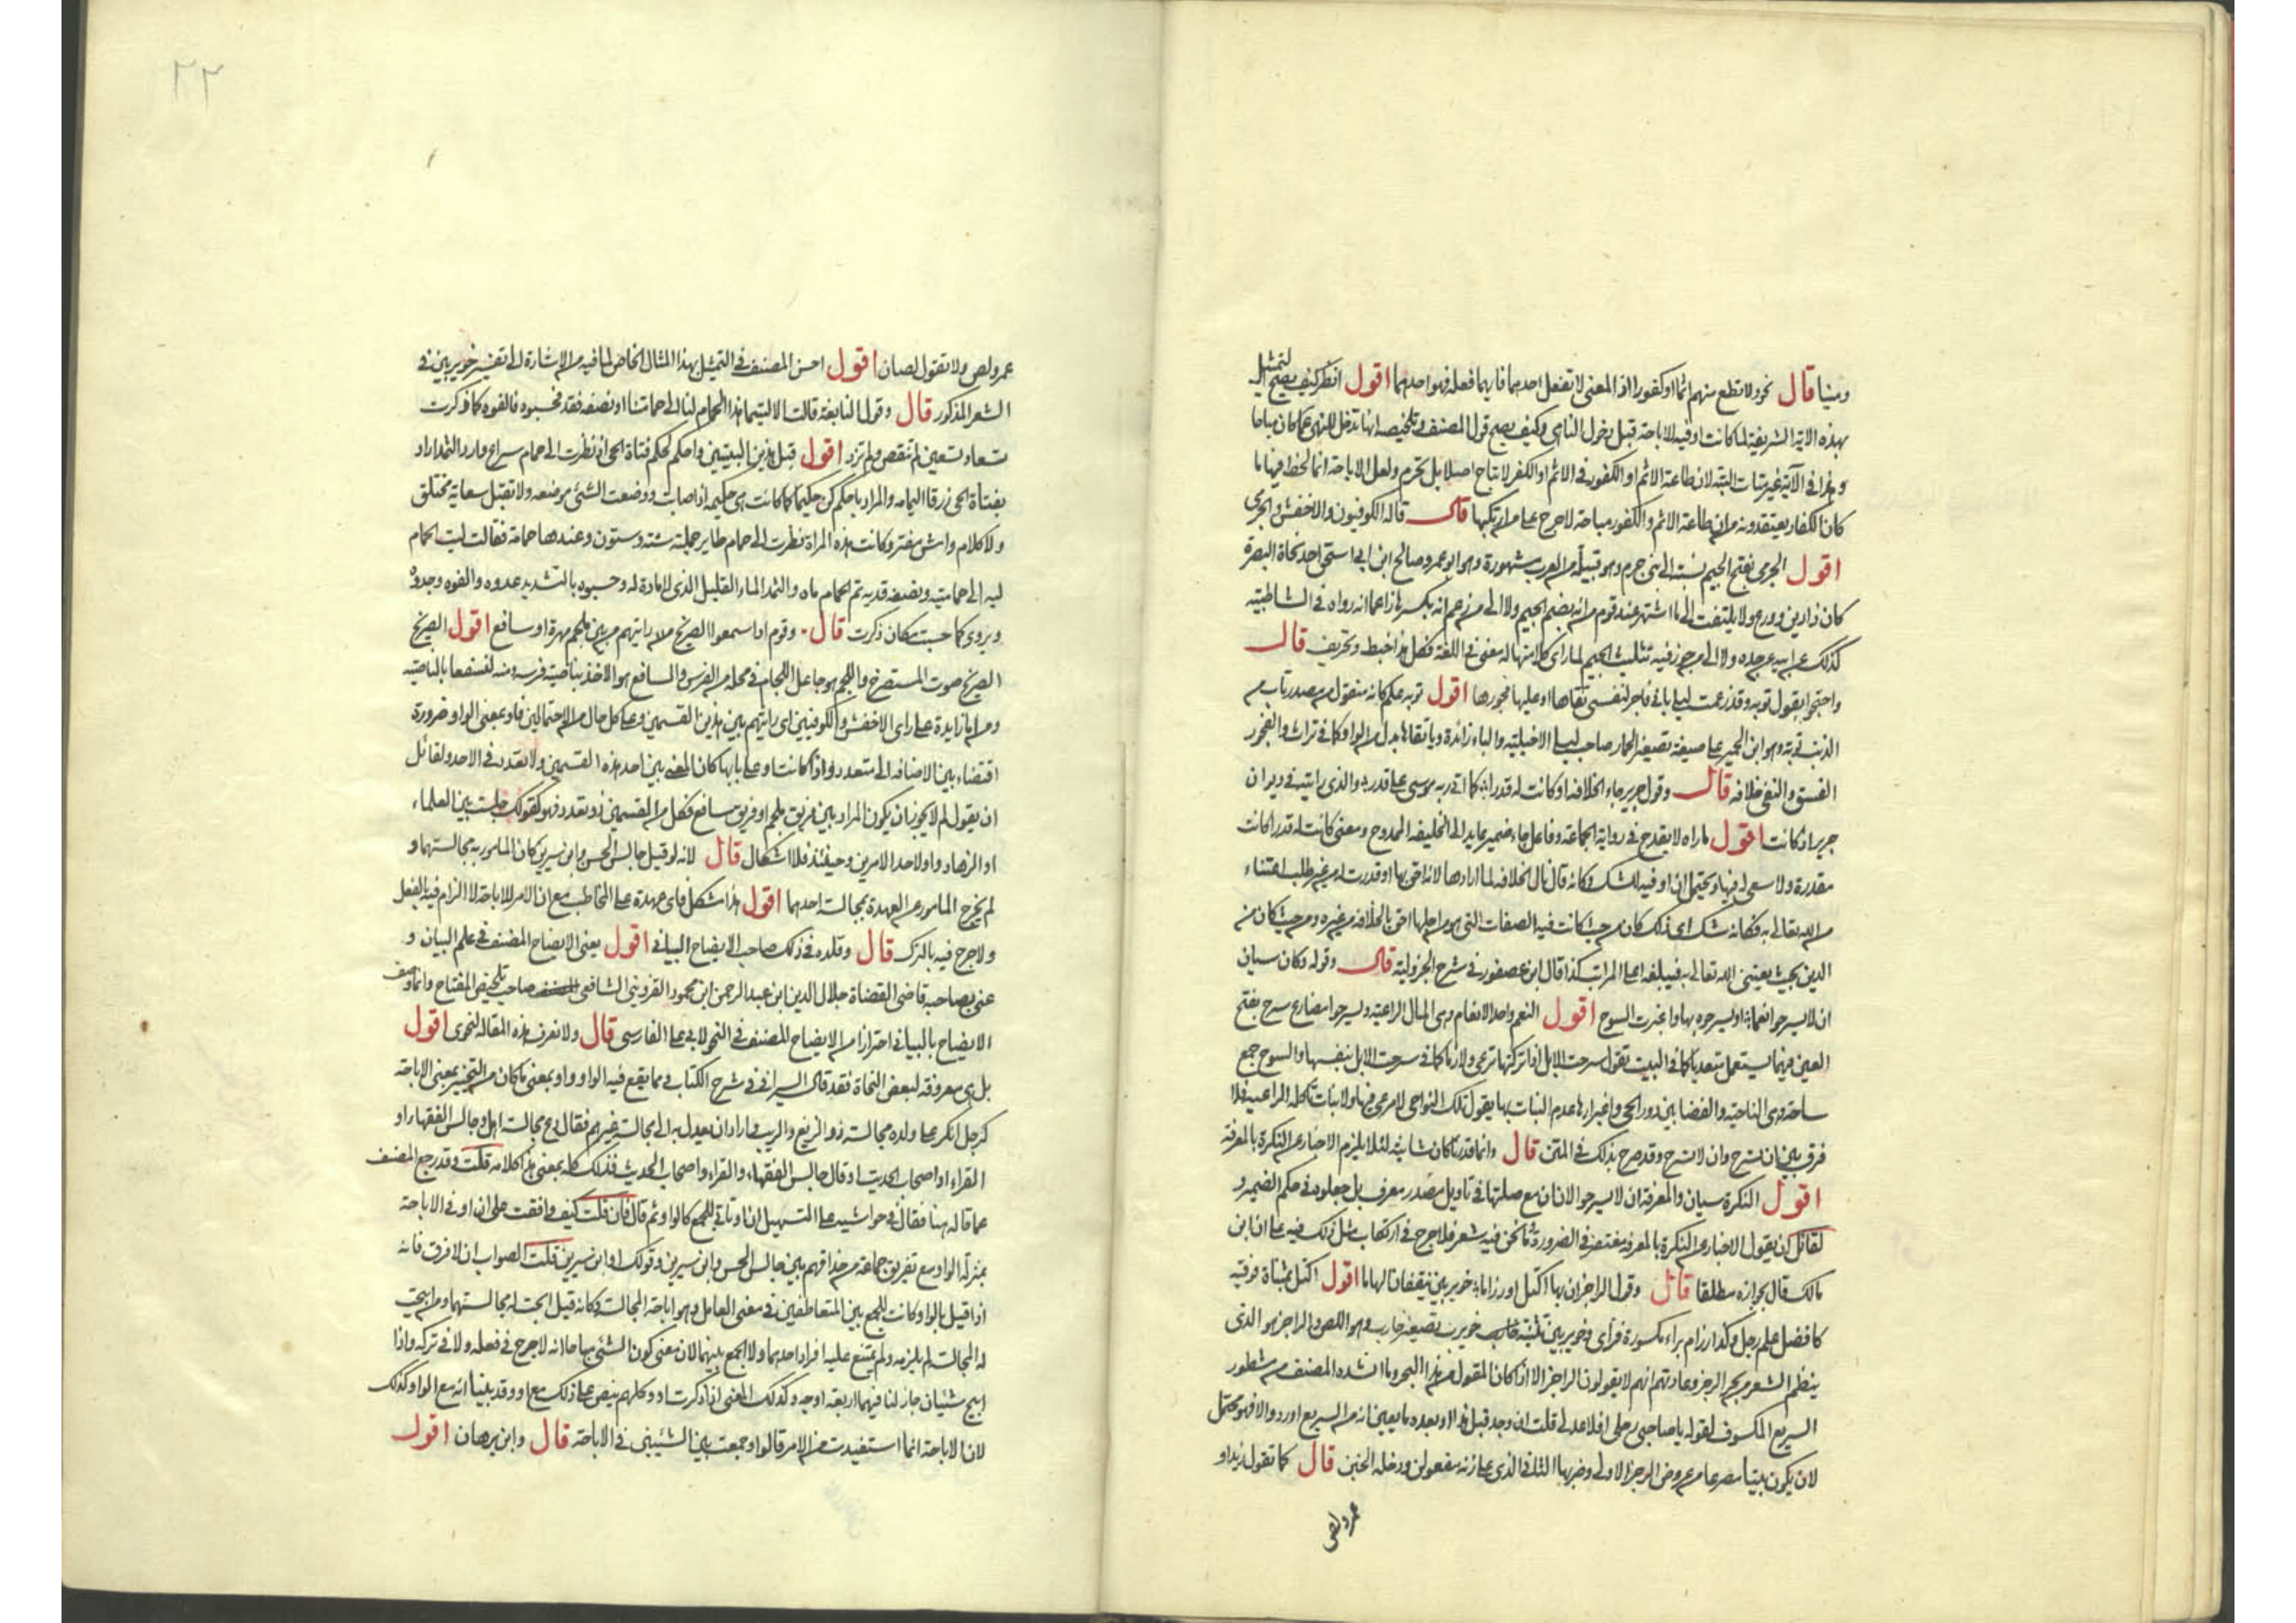 ومينا قال نحو ولا تطع منهم اثما او كفورا اذ المعنى لا تفعل احدهما فايهما فعله فهو احدهما اقول انظر كيف يصح التمثيل
بهذه الاية الشريفة لما كانت او فيه للاباحة قبل دخول الناهي وكيف يصح قول المصنف وتلخيصه انها تدخل للنهي عما كان مباحا
وهذا في الآية غير متات البتة لان طاعة الاثم او الكفور في الاثم او الكفر لا تباح اصلا بل تحرم ولعل الاباحة انما لحظ فيها ما
كان الكفار يعتقدونه من ان طاعة الاثم والكفور مباحة لا حرج على من ارتكبها قال قاله الكوفيون والاخفش والجرمي
اقول الجرمي بفتح الجيم نسبة الى بني جرم وهو قبيلة من العرب مشهورة وهو ابو عمرو صالح ابن ابي اسحق احد نحاة البصرة
كان ذا دين وورع ولا يلتفت الى ما اشتهر عند قوم من انه بضم الجيم ولا الى من زعم انه بكسرها زاعما انه رواه في الشاطبية
كذلك عن ابيه عن جده ولا الى من جوز فيه تثليث الجيم لما راى كلا منها له معنى في اللغة فكل هذا خبط وتحريف قال
واحتجوا بقول توبه وقد زعمت ليلى باني فاجر لنفسي تقاها او عليها فجورها اقول توبه علم كانه منقول من مصدر تاب من
الذنب توبة وهو ابن الحمير على صيغة تصغير الحمار صاحب ليلى الاخيلية والباء زائدة وتا تقاها بدل من الواو كما في تراث والفجور
الفسق والتقى خلافه قال وقول جرير جاء الخلافة او كانت له قدرا كما اتى ربه موسى على قدر والذي رايته في ديوان
جرير اذ كانت اقول ما راه لا يقدح في رواية الجماعة وفاعل جاء ضمير يعايد الى الخليفة الممدوح ومعنى كانت له قدرا كانت
مقدرة ولا سعي له فيها ويحتمل ان او فيه للشك وكانه قال نال الخلافة لما ارادها لانه احق بها او قدرت له من غير طلب اعتناء
من الله تعالى به فكانه شك اي ذلك كان من حيث كانت فيه الصفات التي هو من اجلها احق بالخلافة من غيره ومن حيث كان من
الدين بحيث يعتني الله تعالى به فيبلغه اعلى المراتب كذا قال ابن عصفور في شرح الجزولية قال وقوله وكان سيان
ان لا يسرحوا نعما او يسرحوه بها واغبرت السوح اقول النعم واحد الانعام وهي المال الراعية ويسرحوا مضارع سرح بفتح
العين فيهما يستعمل متعديا كما في البيت تقول سرحت الابل اذا تركتها ترعى ولازما كما في سرحت الابل بنفسها والسوح جمع
ساحة وهي الناحية والفضا بين دور الحي واغبرارها عدم النبات بها يقول تلك النواحي لا مرعى فيها ولا نبات تاكله الراعية فلا
فرق بين ان تسرح وان لا تسرح وقد صرح بذلك في المتن قال وانما قدرنا كان شانية لئلا يلزم الاخبار عن النكرة بالمعرفة
اقول النكرة سيان والمعرفة ان لا يسرحوا لان ان مع صلتها في تاويل مصدر معرف بل جعلوه في حكم الضمير و
لقائل ان يقول الاخبار عن النكرة بالمعرفة مغتفر في الضرورة وما نحن فيه شعر فلا حرج في ارتكاب مثل ذلك فيه على ان ابن
مالك قال بجوازه مطلقا قال وقول الراجز ان بها اكتل او رزاما خويربين ينقفان الهاما اقول اكتل بمثناة فوقية
كافضل علم رجل وكذا رزام براء مكسورة فزاى وخويربين تثنية خويرب تصغير خارب وهو اللص والراجز هو الذي
ينظم الشعر من بحر الرجز وعادتهم انهم لا يقولون الراجز الا اذا كان المقول من هذا البحر وما انشده المصنف من مشطور
السريع المكسوف لقوله يا صاحبي رحلي اقلا عذلي قلت ان وجد قبل هذا او بعده ما يعين انه من السريع اورد والا فهو محتمل
لان يكون بيتا مصرعا من عروض الرجز الاولى وضربها الثاني الذي على زنة مفعولن ودخله الخبن قال كما تقول زيد او
عمرو لص
٢٢
عمرو لص ولا تقول لصان اقول احسن المصنف في التمثيل بهذا المثال الخاص لما فيه من الاشارة الى تفسير خويربين في
الشعر المذكور قال وقول النابغة قالت الا ليتما هذا الحمام لنا الى حمامتنا او نصفه فقد فحسبوه فالفوه كما ذكرت
تسعا وتسعين لم تنقص ولم تزد اقول قبل هذين البيتين واحكم كحكم فتاة الحي اذ نظرت الى حمام سراع وارد الثمد اراد
بفتاة الحي زرقا اليمامه والمراد باحكم كن حكيما كما كانت هي حكيمه اذ اصابت ووضعت الشئ موضعه ولا تقبل سعاية مختلق
ولا كلام واش مفتر وكانت هذه المراة نظرت الى حمام طاير جملته ستة وستون وعندها حمامة فقالت ليت الحمام
ليه الى حمامتيه ونصفه قديه تم الحمام مايه والثمد الماء القليل الذي لا مادة له وحسبوه بالتشديد عدوه والفوه وجدوه
ويروى كما حسبت مكان ذكرت قال وقوم اذا سمعوا الصريخ رايتهم من بين ملجم مهره او سافع اقول الصريخ
الصريخ صوت المستصرخ والملجم هو جاعل اللجام في محله من الفرس والسافع هو الاخذ بناصية فرسه ومنه لنسفعا بالناصية
ومن اما زايدة على راى الاخفش والكوفيين اى رايتهم بين هذين القسمين وعلى كل حال من الاحتمالين فاو بمعنى الواو ضرورة
اقتضاء بين الاضافه الى متعدد واذا كانت او على بابها كان المعنى بين احد هذه القسمين ولا تعدد في الاحد ولقائل
ان يقول لم لا يجوز ان يكون المراد بين فريق ملجم او فريق سافع فكل من القسمين ذو تعدد فهو كقولك جلست بين العلماء
او الزهاد واو لاحد الامرين وحينئذ فلا اشكال قال لانه لو قيل جالس الحسن وابن سيرين كان المامور به مجالستهما و
لم يخرج المامور عن العهدة بمجالسة احدهما اقول هذا مشكل فاى عهدة على المخاطب مع ان الامر للاباحة لا الزام فيه بالفعل
ولا حرج فيه بالترك قال وقلده في ذلك صاحب الايضاح البياني اقول يعني الايضاح المصنف في علم البيان و
عنى بصاحبه قاضي القضاة جلال الدين ابن عبد الرحمن ابن محمود القزويني الشافعي صاحب تلخيص المفتاح وانما وصف
الايضاح بالبياني احترازا من الايضاح المصنف في النحو لابي علي الفارسي قال ولا نعرف هذه المقالة لنحوي اقول
بل هي معروفة لبعض النحاة فقد قال السيرافي في شرح الكتاب فمما يقع فيه الواو واو بمعنى ما كان من التخيير بمعنى الاباحة
كرجل انكر على ولده مجالسة ذو الزيغ والريب واراد ان يعدل به الى مجالسة غيرهم فقال دع مجالسة اهل وجالس الفقها او
القراء او اصحاب الحديث او قال جالس الفقهاء والقراء واصحاب الحديث فذلك كله بمعنى هذا كلامه قلت وقد رجع المصنف
عما قاله هنا فقال في حواشيه على التسهيل ان او تاتي للجمع كالواو ثم قال فان قلت كيف وافقت على ان او في الاباحة
بمنزلة الواو مع تفريق جماعة من حذاقهم بين جالس الحسن وابن سيرين وقولك او ابن سيرين قلت الصواب ان لا فرق فانه
اذا قيل بالواو كانت للجمع بين المتعاطفين في معنى العامل وهو اباحة المجالسة وكانه قيل ابحت له مجالستهما ومن ابيحت
له المجالسة لم يلزمه ولم يمتنع عليه افراد احدهما ولا الجمع بينهما لان معنى كون الشئ مباحا انه لا حرج في فعله ولا في تركه واذا
ابيح شيئان جاز لنا فيهما اربعة اوجه وكذلك المعنى اذا ذكرت او وكلهم ينص على ذلك مع او وقد بينا انه مع الواو كذلك
لان الاباحة انما استفيدت من الامر قالوا وجمعت بين الشيئين في الاباحة قال وابن برهان اقول